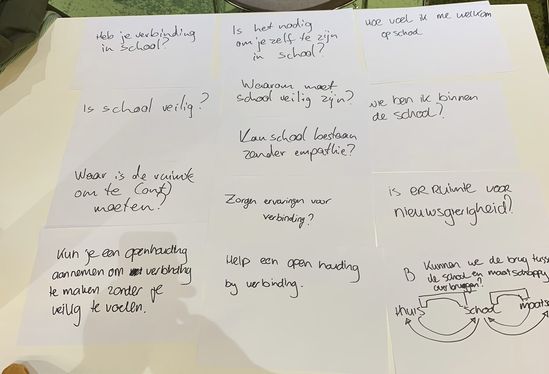 Heb je verbinding
in school?
Is het nodig
om je zelf te zijn
in school?
Hoe voel ik me welkom
op school
Is school veilig?
Waarom moet
school veilig zijn?
Kan school bestaan
zonder empathie?
wie ben ik binnen
de school?
Waar is de ruimte
om te (ont)
moeten?
Zorgen ervaringen voor
verbinding?
is er ruimte voor
nieuwsgierigheid?
Kun je een openhouding
aannemen om verbinding
te maken zonder je
veilig te voelen.
Help een open houding
by verbinding.
B Kunnen we de brug tuss
de school en maatschappy
overbruggen?
thuis school maats